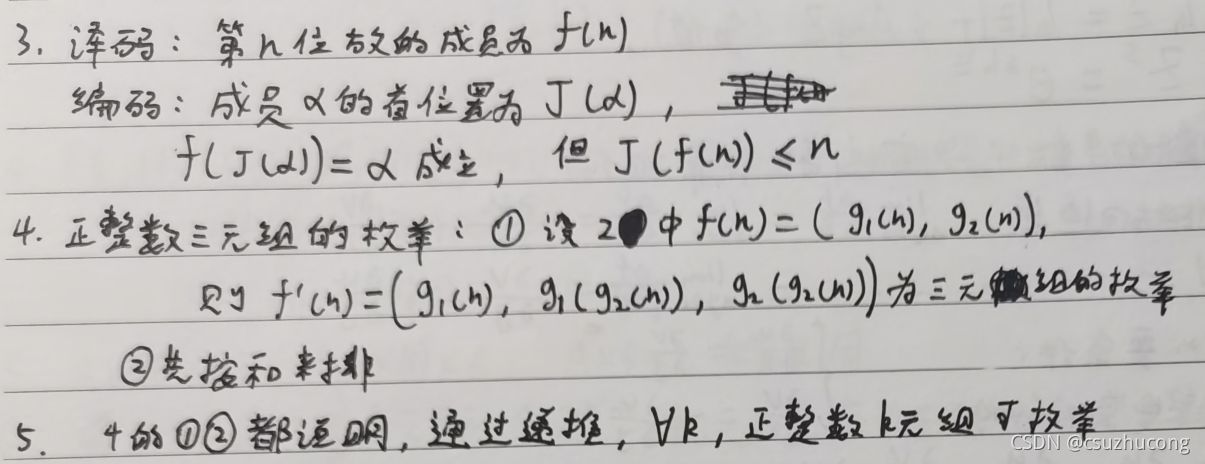 3. 译码：第n位放的成员为 f(n)
编码：成员α的首位置为 J(α)，
f(J(α))=α 成立，但 J(f(n))≤n
4. 正整数三元组的枚举：① 设2中 f(n)=( g₁(n), g₂(n)),
则 f'(n)=(g₁(n), g₁(g₂(n)), g₂(g₂(n))) 为三元组的枚举
②先按和来排
5. 4的①②都证明，通过递推，∀k，正整数k元组可枚举
CSDN @csuzhucong